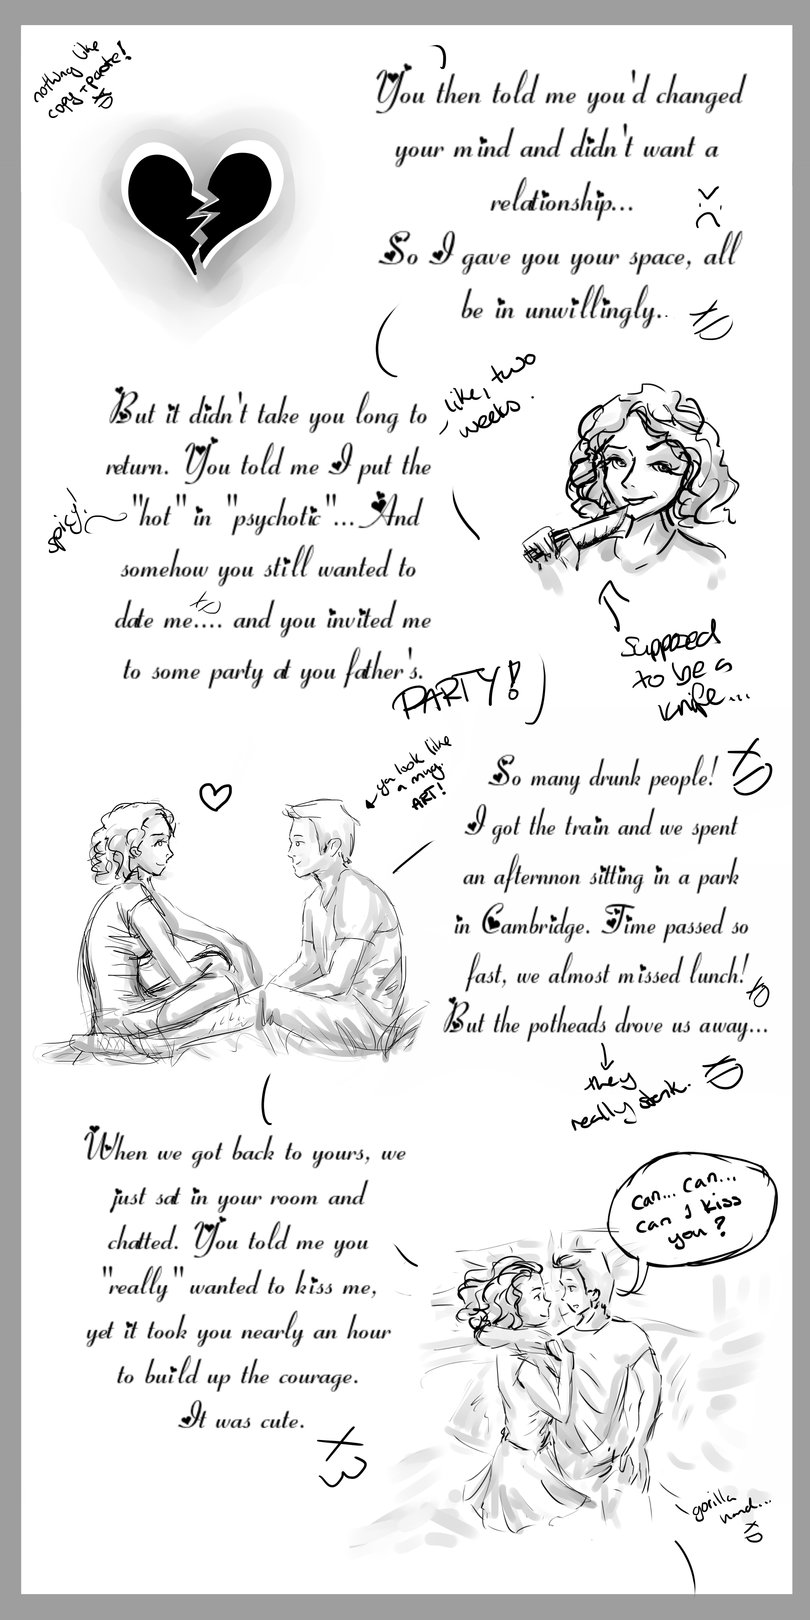 nothing like
copy + paste!
XD
You then told me you'd changed
your mind and didn't want a
relationship...
:(
So I gave you your space, all
be in unwillingly..
XD
But it didn't take you long to
return. You told me I put the
"hot" in "psychotic"... And
somehow you still wanted to
date me.... and you invited me
to some party at you father's.
like, two
weeks.
spicy!
XD
Supposed
to be a
knife...
PARTY!
ya look like
a mug.
ART!
So many drunk people!
XD
I got the train and we spent
an afternnon sitting in a park
in Cambridge. Time passed so
fast, we almost missed lunch!
XD
But the potheads drove us away...
they
really stank.
XD
When we got back to yours, we
just sat in your room and
chatted. You told me you
"really" wanted to kiss me,
yet it took you nearly an hour
to build up the courage.
It was cute.
X3
can... can...
can I kiss
you?
gorilla
hand...
XD